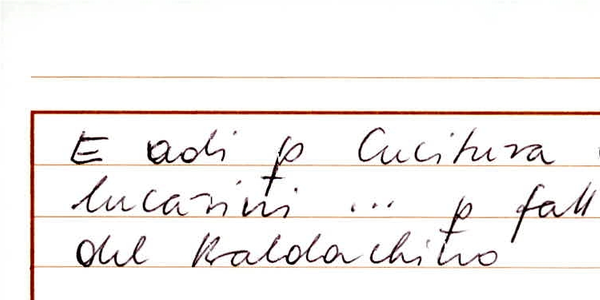 E adi p Cucitura
lucarini ... p fatt
del Baldachino